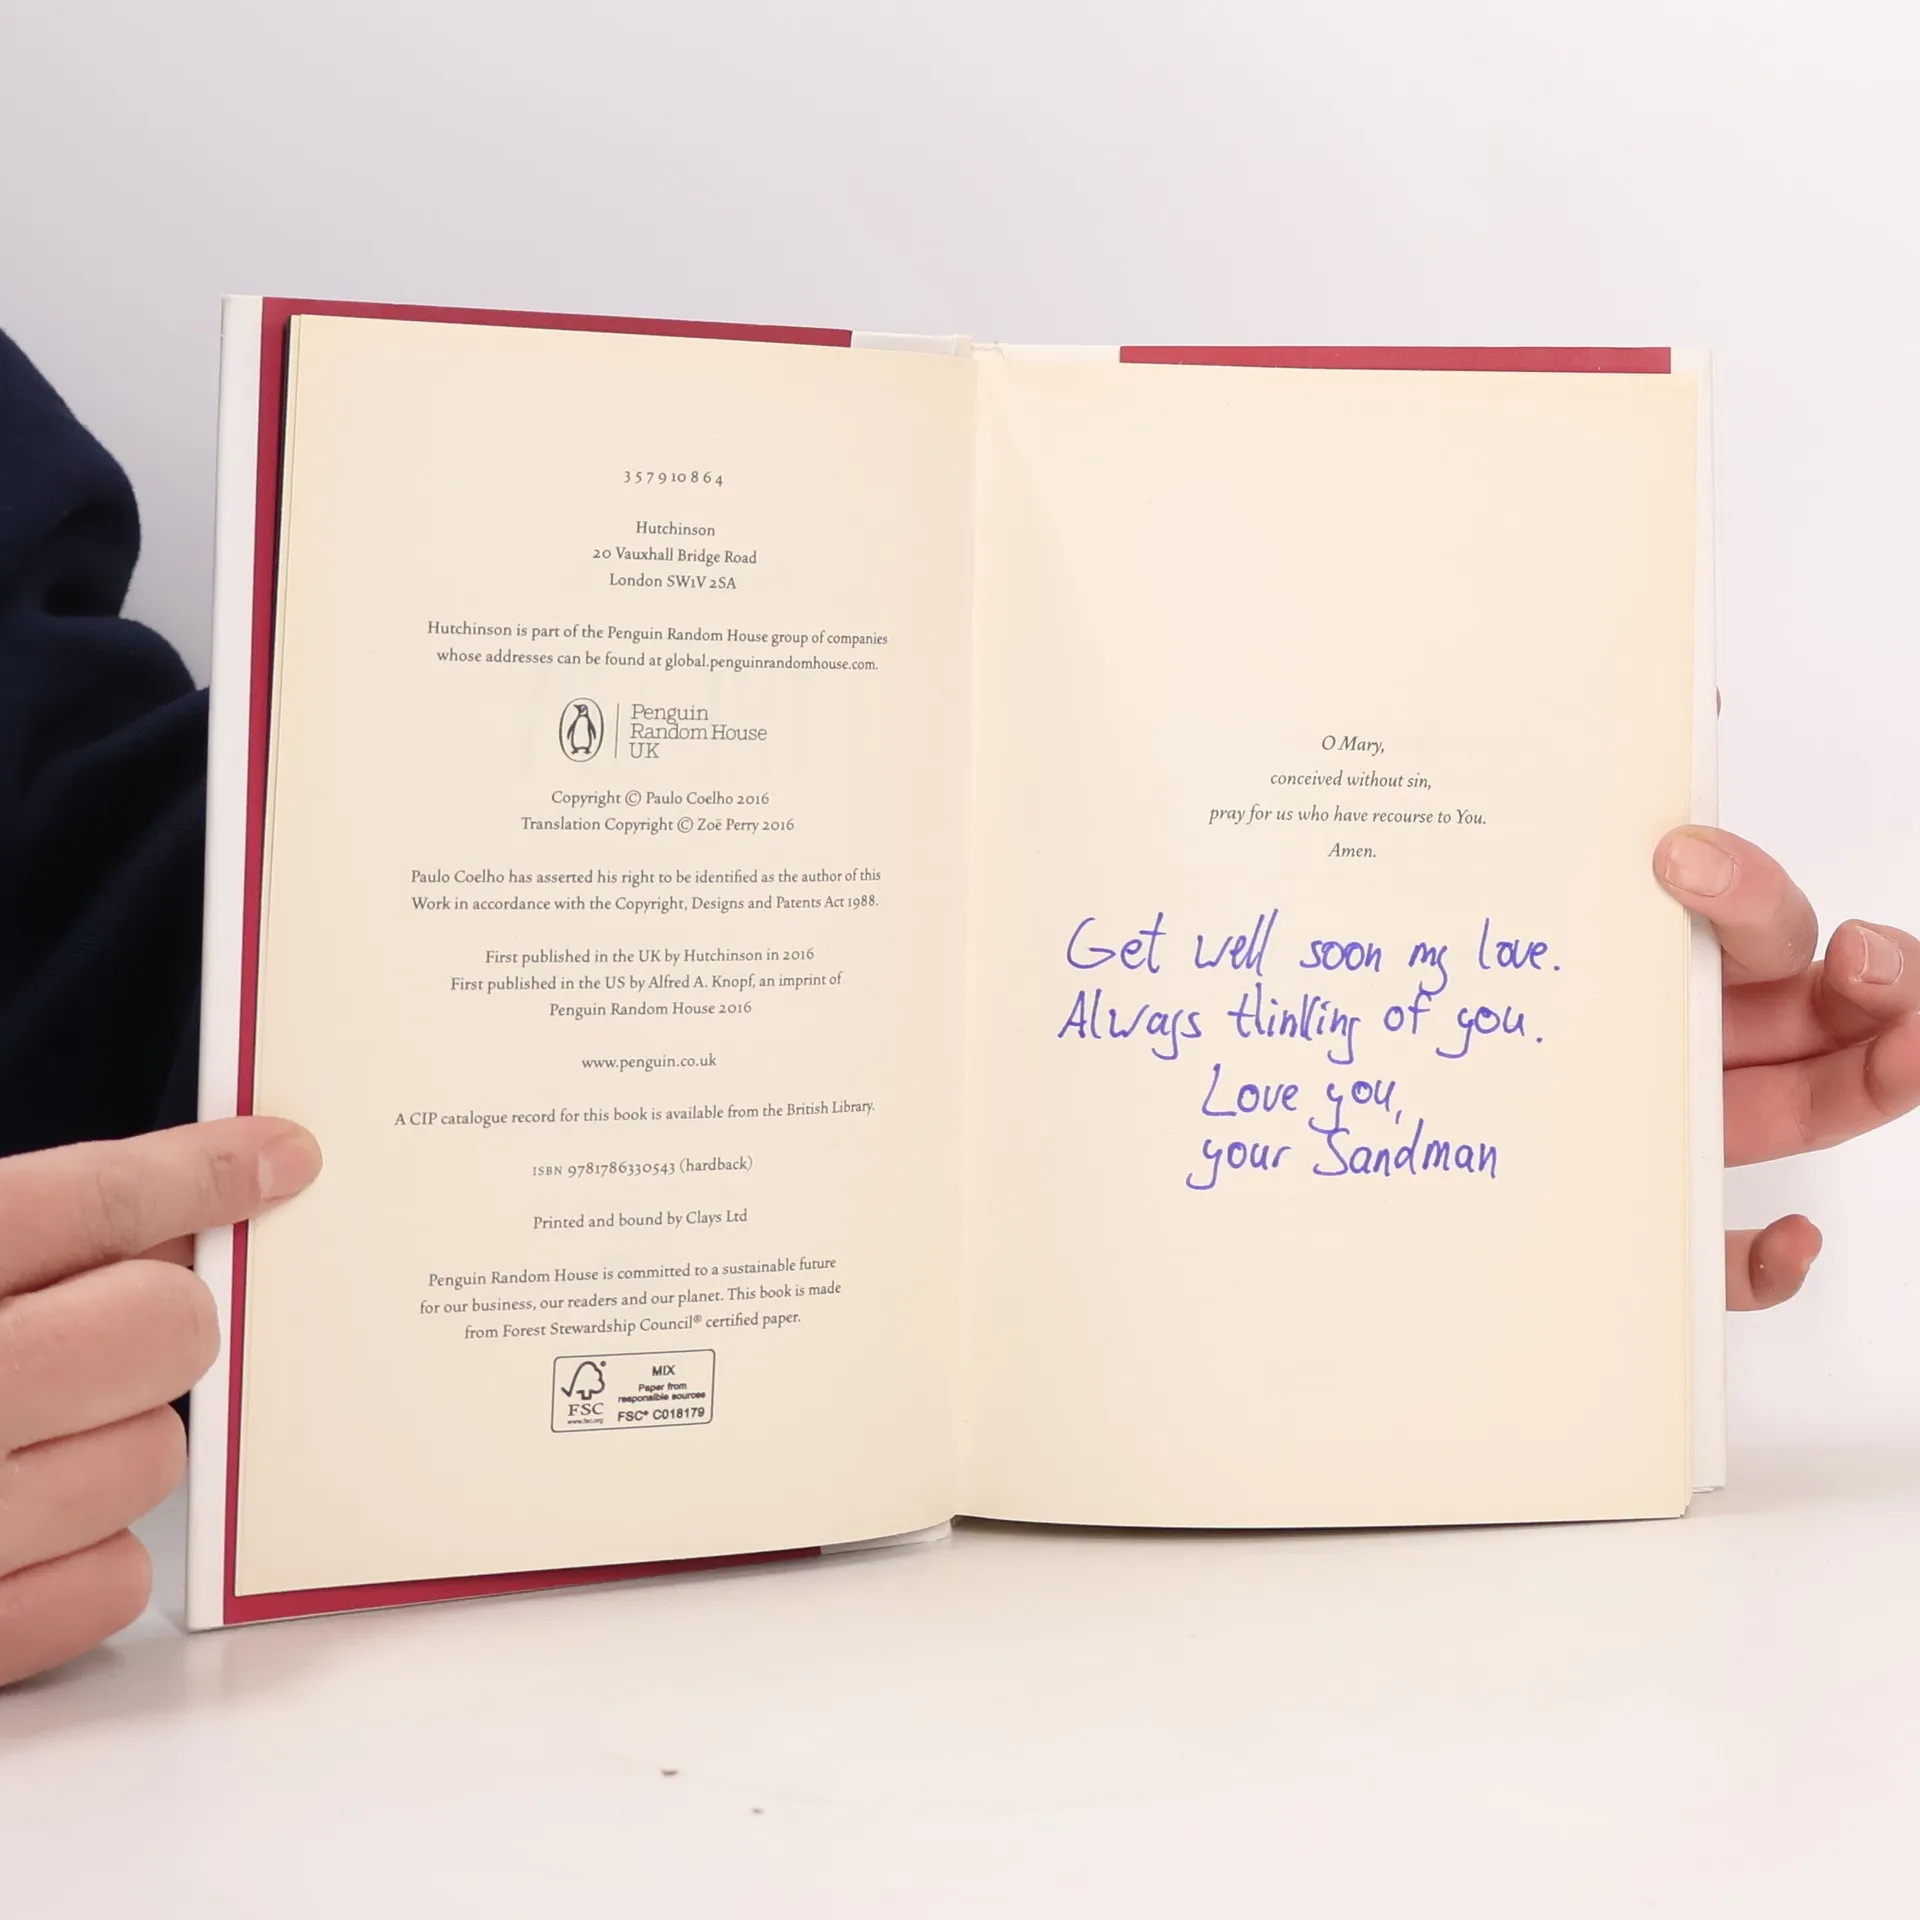 3 5 7 9 10 8 6 4
Hutchinson
20 Vauxhall Bridge Road
London SW1V 2SA
Hutchinson is part of the Penguin Random House group of companies
whose addresses can be found at global.penguinrandomhouse.com.
Penguin
Random House
UK
Copyright © Paulo Coelho 2016
Translation Copyright © Zoë Perry 2016
Paulo Coelho has asserted his right to be identified as the author of this
Work in accordance with the Copyright, Designs and Patents Act 1988.
First published in the UK by Hutchinson in 2016
First published in the US by Alfred A. Knopf, an imprint of
Penguin Random House 2016
www.penguin.co.uk
A CIP catalogue record for this book is available from the British Library.
ISBN 9781786330543 (hardback)
Printed and bound by Clays Ltd
Penguin Random House is committed to a sustainable future
for our business, our readers and our planet. This book is made
from Forest Stewardship Council® certified paper.
MIX
Paper from
responsible sources
FSC® C018179
FSC
www.fsc.org
O Mary,
conceived without sin,
pray for us who have recourse to You.
Amen.
Get well soon my love.
Always thinking of you.
Love you,
your Sandman